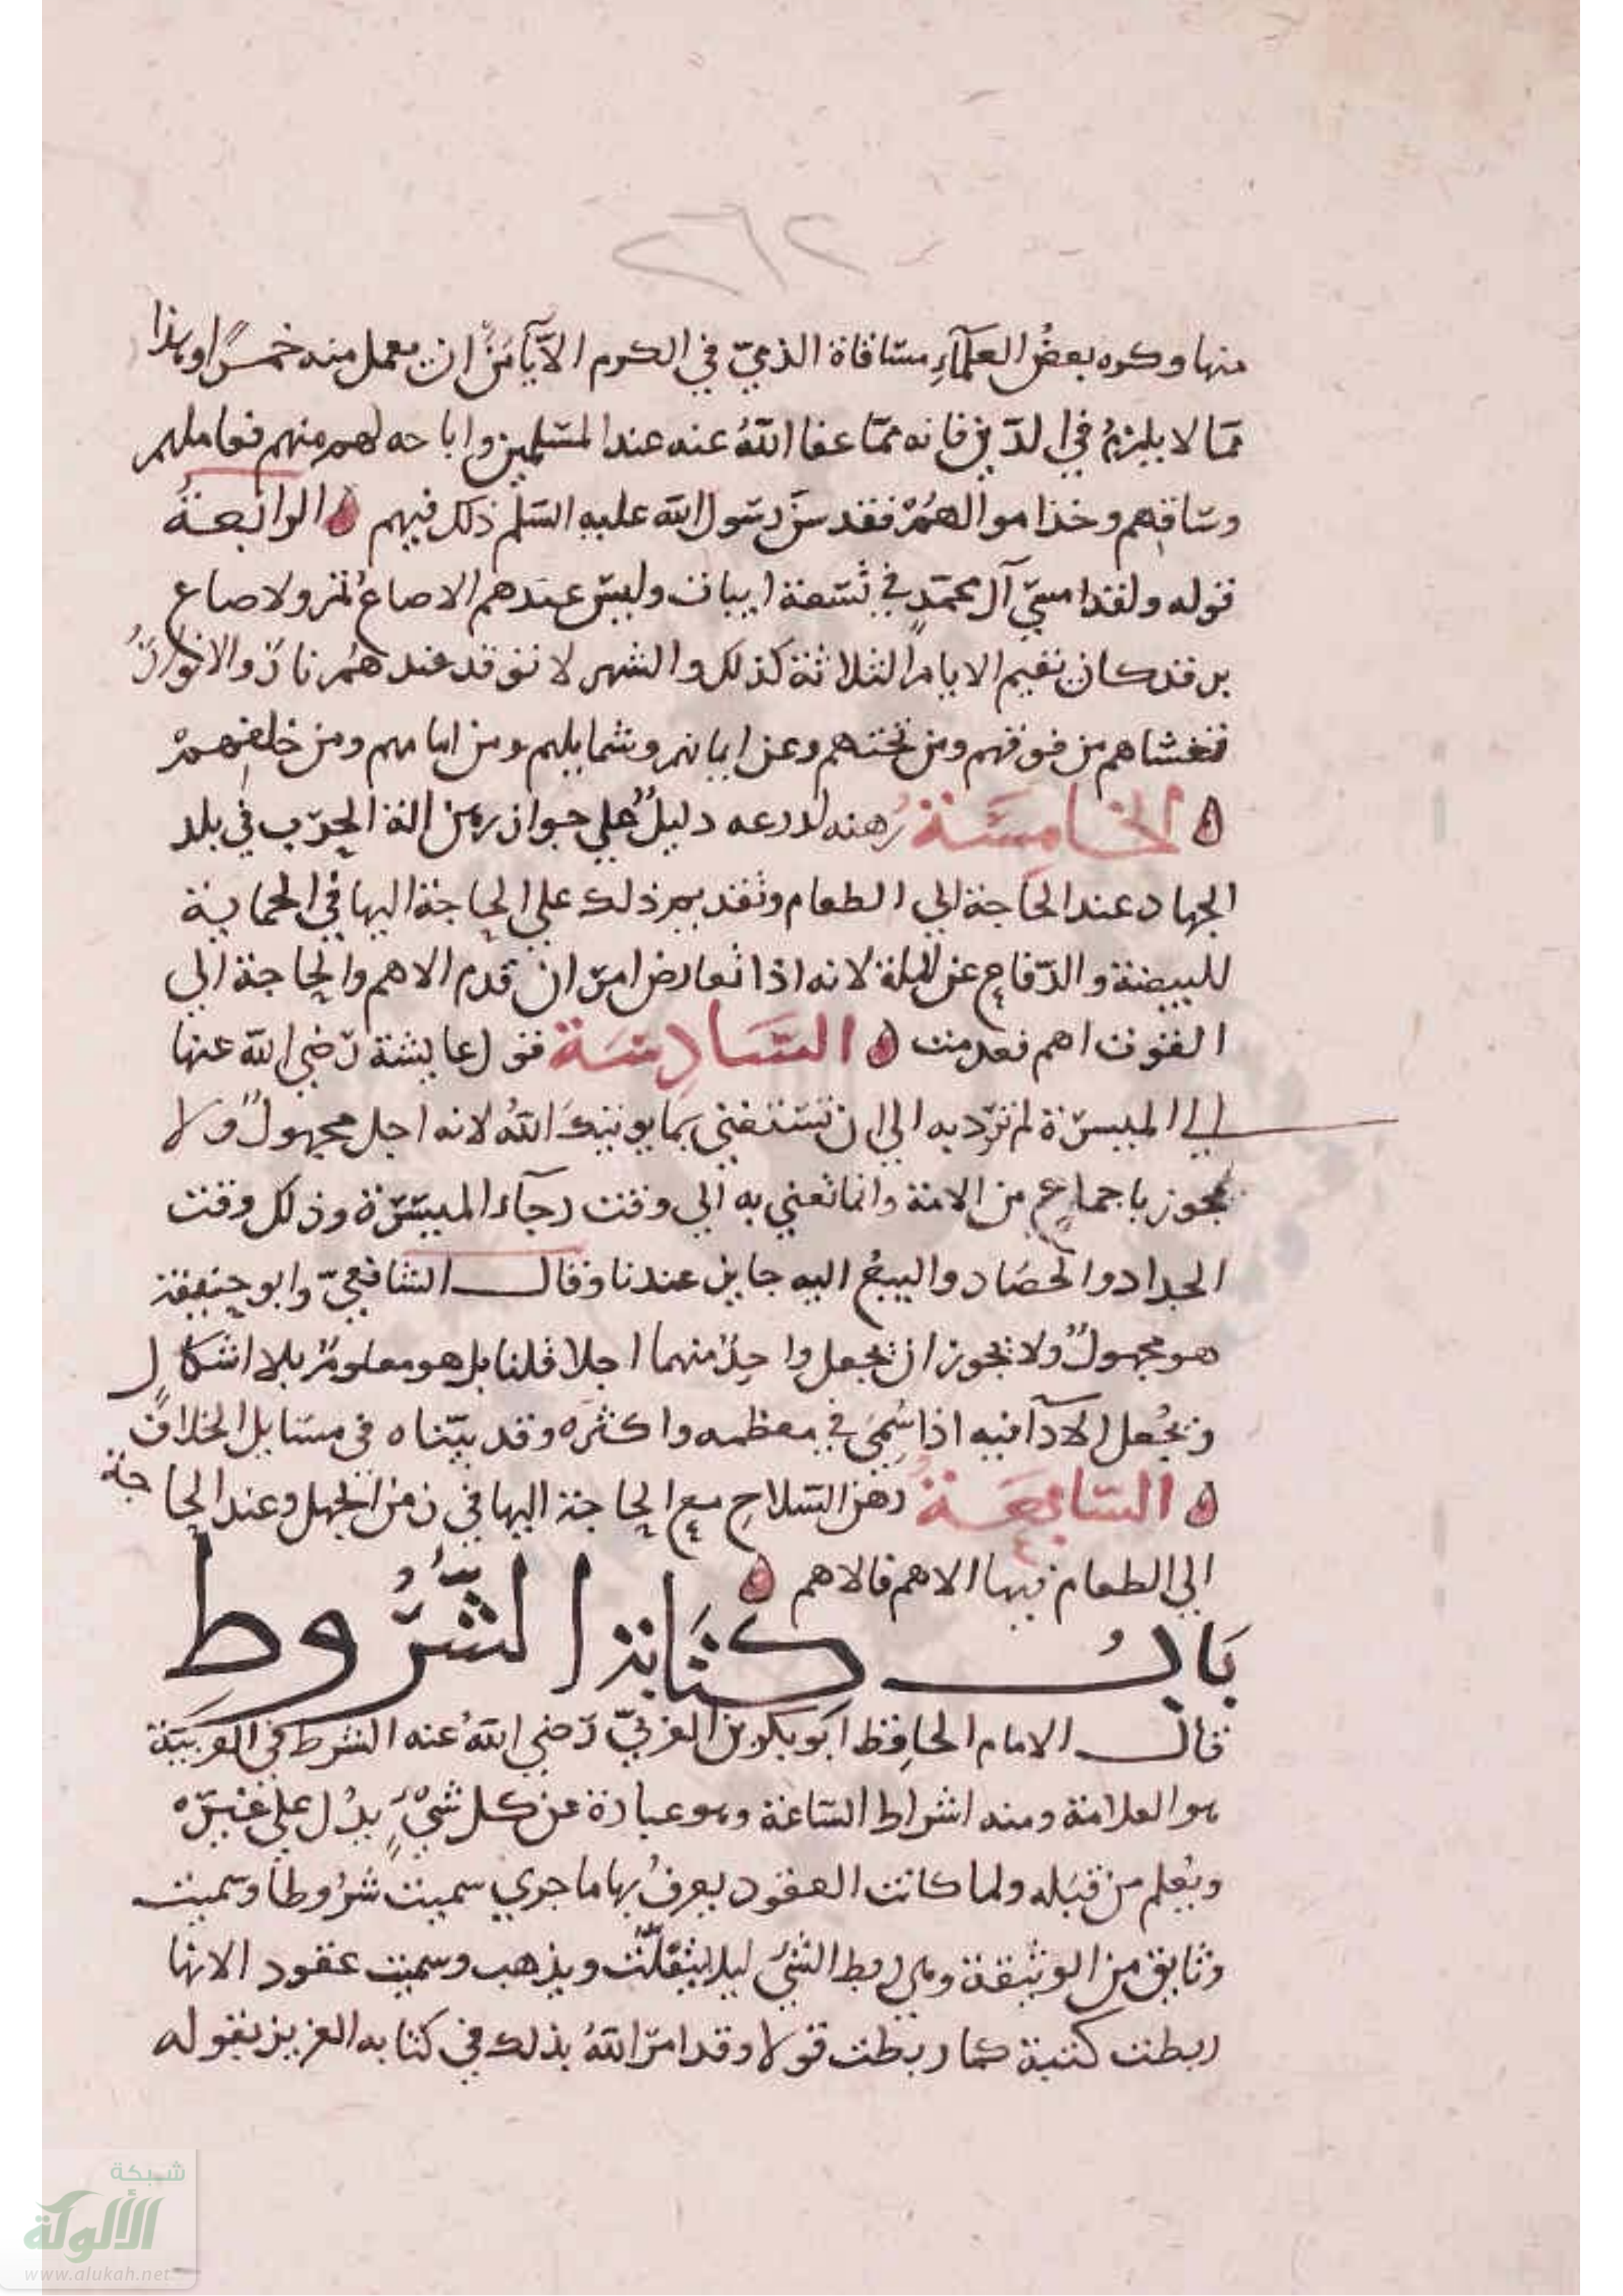 ٢٦٢
منها وكره بعض العلمآء مساقاة الذميّ في الكرم الا يأمن ان يعمل منه خمرًا وهذا
ممّا لا يلزم في الدّين فانه ممّا عفا اللهُ عنه عند المسلمين واباحه لهم منهم فعاملهم
وساقهم وخذ اموالهمْ فقد سنّ رسول الله عليه السّلم ذلك فيهم ه الرابعة
قوله ولقد امسيّ آل محمّدٍ في تسعة ابيات وليس عندهم الا صاعُ تمر ولا صاع
بر قد كان تقيم الايام الثلاثة كذلك والشهر لا توقد عندهُم نارٌ والانوارُ
تغشاهم من فوقهم ومن تحتهم وعن ايمانهم وشمايلهم ومن امامهم ومن خلفهمْ
ه الخامسَة رُهنه لدرعه دليلٌ علي جواز رهن الة الحرب في بلد
الجهاد عند الحاجة الي الطعام وتقديم ذلك علي الحاجة اليها في الحماية
للبيضة والدّفاع عن الملة لانه اذا تعارض امران قدم الاهم والحاجة الي
القوت اهم فقدمت ه السَّادسَة قول عايشة رّضي الله عنها
الي الميسرة لم تردّ به الي ان تستغني بما يوتيكَ اللهُ لانه اجل مجهولٌ ولا
يجوز باجماع من الامة وانما تعني به الي وقت رجآء الميسّرة وذلك وقت
الجداد والحصَاد والبيعُ اليه جايز عندنا وقال الشافعيّ وابو حنيفة
هو مجهولٌ ولا يجوز ان يجعل واحدٌ منهما اجلا قلنا بل هو معلومٌ بلا اشكال
ويُجعل الادآ فيه اذا سُمّيَ في معظمه واكثره وقد بيّناه في مسَايل الخلاف
ه السّابعَة رهن السّلاح مع الحاجة اليها في زمن الجهل وعند الحاجة
الي الطعام فيها الاهم فالاهم ه
بَابُ كِتَابة الشُّرُوطِ
قال الامام الحافِظ ابو بكر بن العربيّ رّضي اللهُ عنه الشرط في العربيّة
هو العلامة ومنه اشراط السّاعة وهو عبارة عن كل شيْءٍ يدُل علي غيره
ويُعلم من قبَله ولما كانت العقود يعرفُ بها ما جري سميت شرُوطًا وسميت
وثايق من الوثيقة وهي ربط الشيُ ليلا يتفلّت ويذهب وسميت عقود الانها
ربطت كتبة كما ربطت قولا وقد امرّ اللهُ بذلك في كتابه العزيز بقوله
شبكة
الألوكة
www.alukah.net